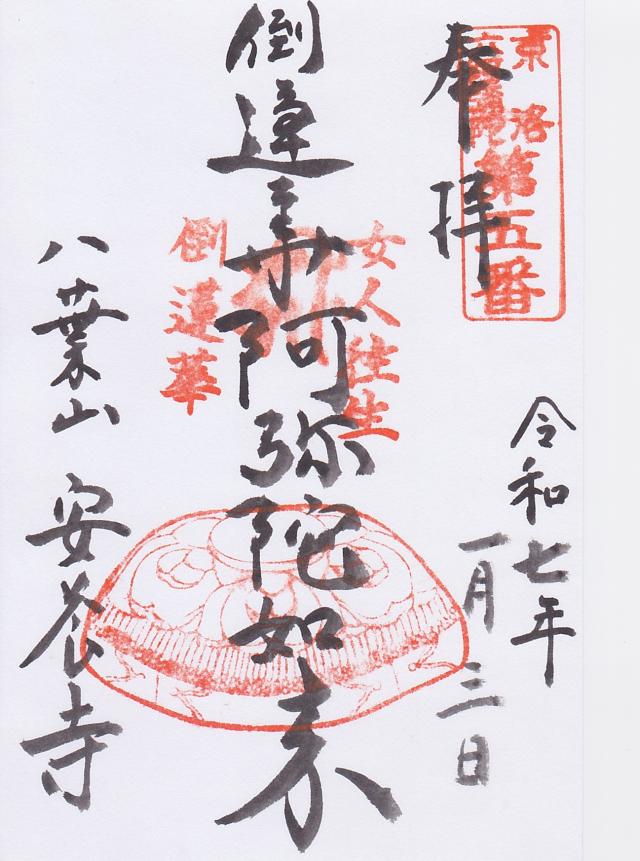 奉拝
第五番
令和七年
一月三日
女人往生
倒蓮華阿弥陀如来
倒蓮華
八葉山 安養寺